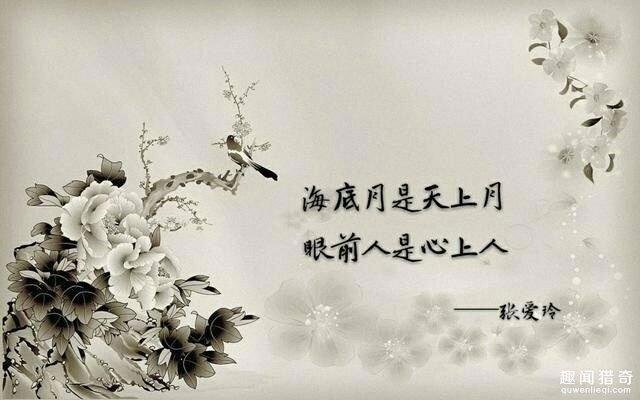 海底月是天上月
眼前人是心上人
——张爱玲
趣闻猎奇
quwenlieqi.com